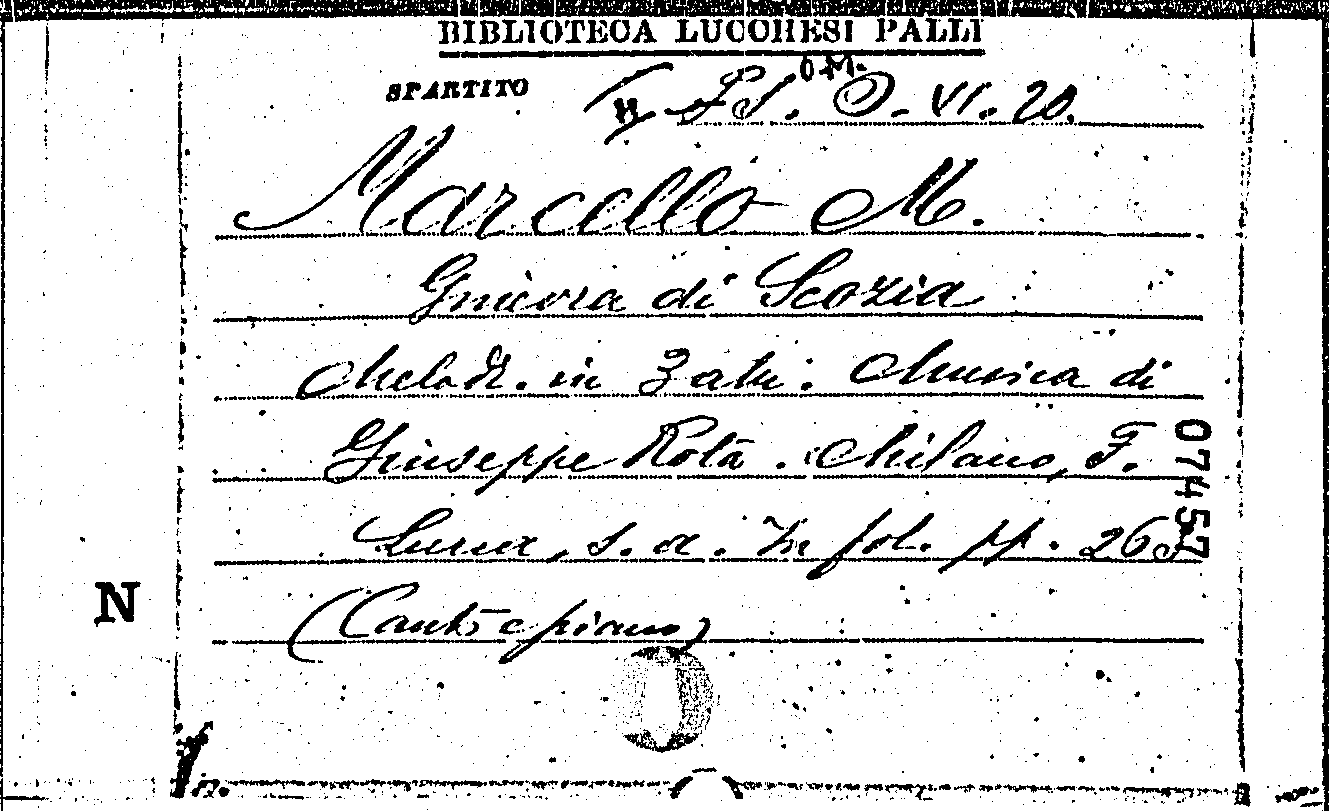 BIBLIOTECA LUCCHESI PALLI
O.M.
SPARTITO
O. VI. 20.
Marcello M.
Ginevra di Scozia
Melodr. in 3 atti. Musica di
Giuseppe Rota. Milano, F.
Lucca, s. a. In fol. pp. 263
(Canto e piano)
07457
N